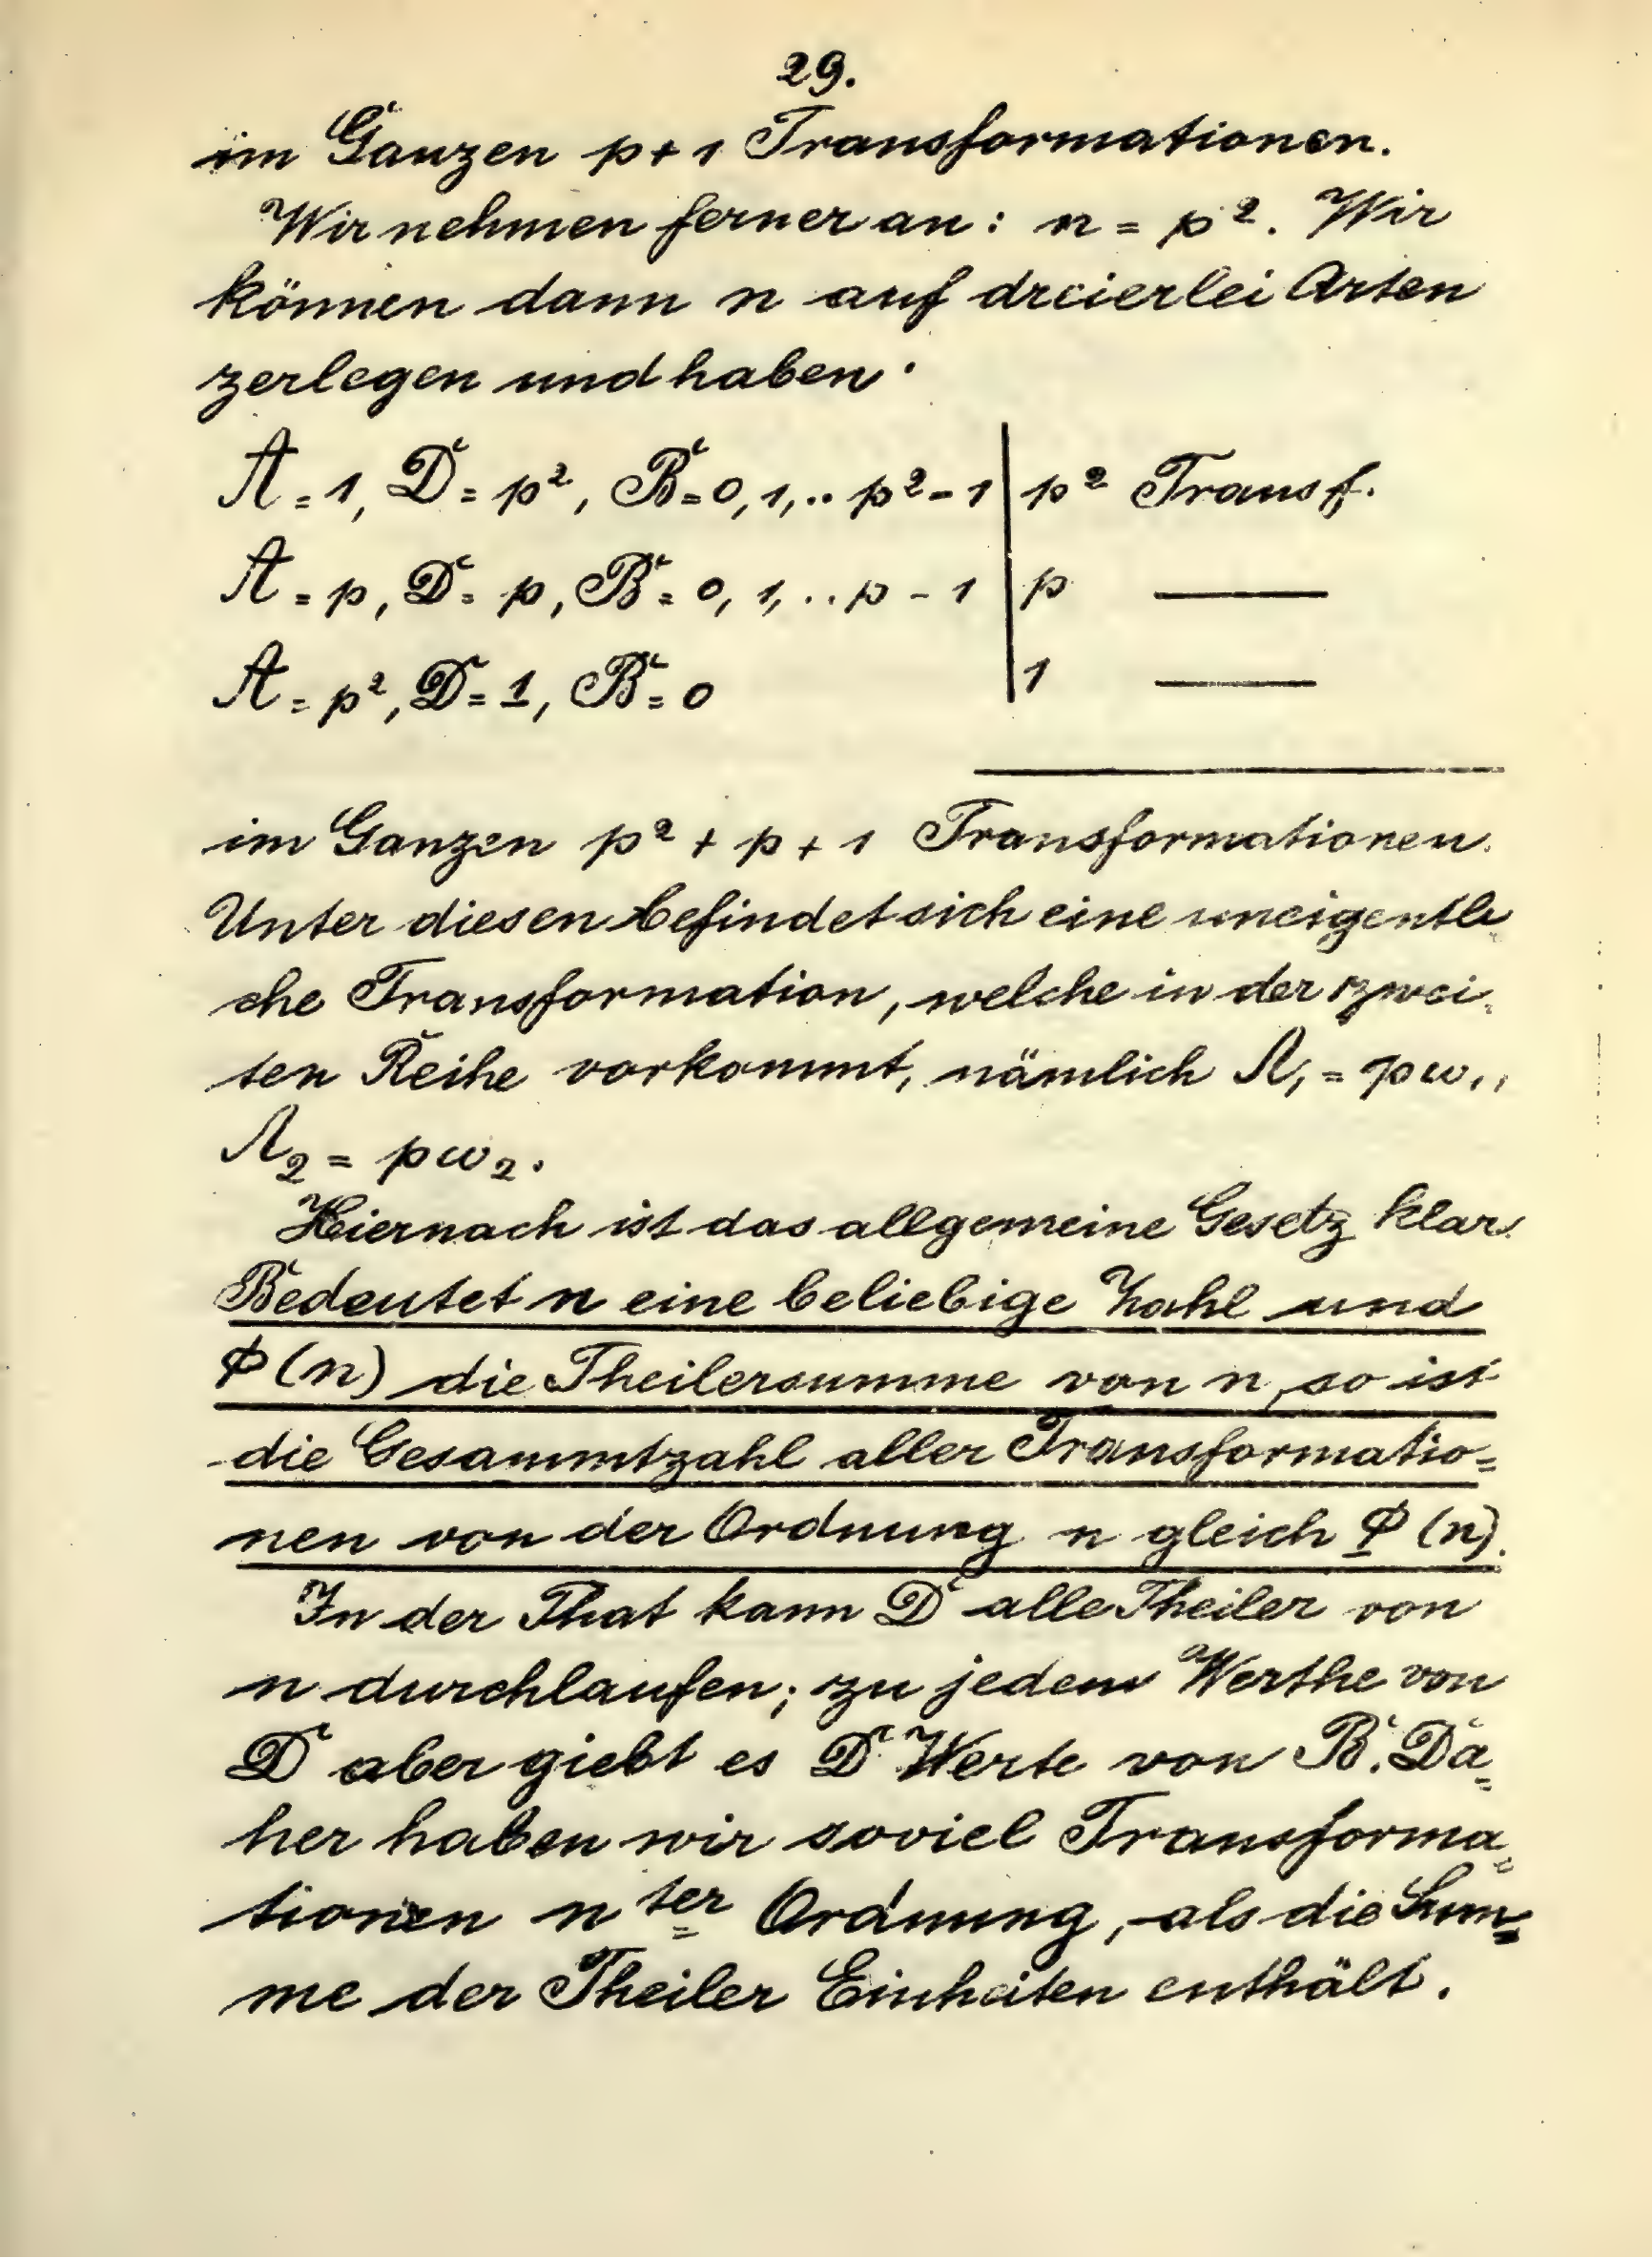 29.
im Ganzen p+1 Transformationen.
Wir nehmen ferner an: n = p². Wir
können dann n auf dreierlei Arten
zerlegen und haben·
A = 1, D = p², B = 0, 1, .. p² - 1 | p² Transf.
A = p, D = p, B = 0, 1, .. p - 1 | p ——
A = p², D = 1, B = 0 | 1 ——
im Ganzen p² + p + 1 Transformationen.
Unter diesen befindet sich eine uneigentli
che Transformation, welche in der zwei-
ten Reihe vorkommt, nämlich Λ₁ = pω₁,
Λ₂ = pω₂.
Hiernach ist das allgemeine Gesetz klar.
Bedeutet n eine beliebige Zahl und
Φ(n) die Theilersumme von n, so ist
die Gesammtzahl aller Transformatio=
nen von der Ordnung n gleich Φ(n).
In der That kann D alle Theiler von
n durchlaufen; zu jedem Werthe von
D aber giebt es D Werte von B. Da=
her haben wir soviel Transforma=
tionen n ter Ordnung, als die Sum=
me der Theiler Einheiten enthält.